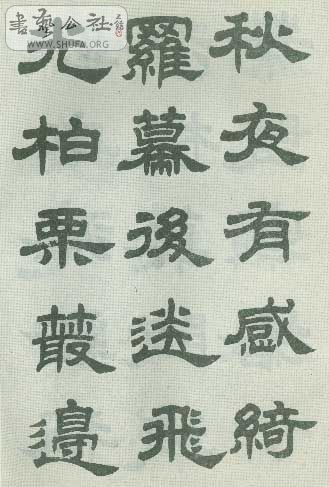 秋夜有感綺
羅幕後送飛
光柏栗叢邊
書藝公社
WWW.SHUFA.ORG